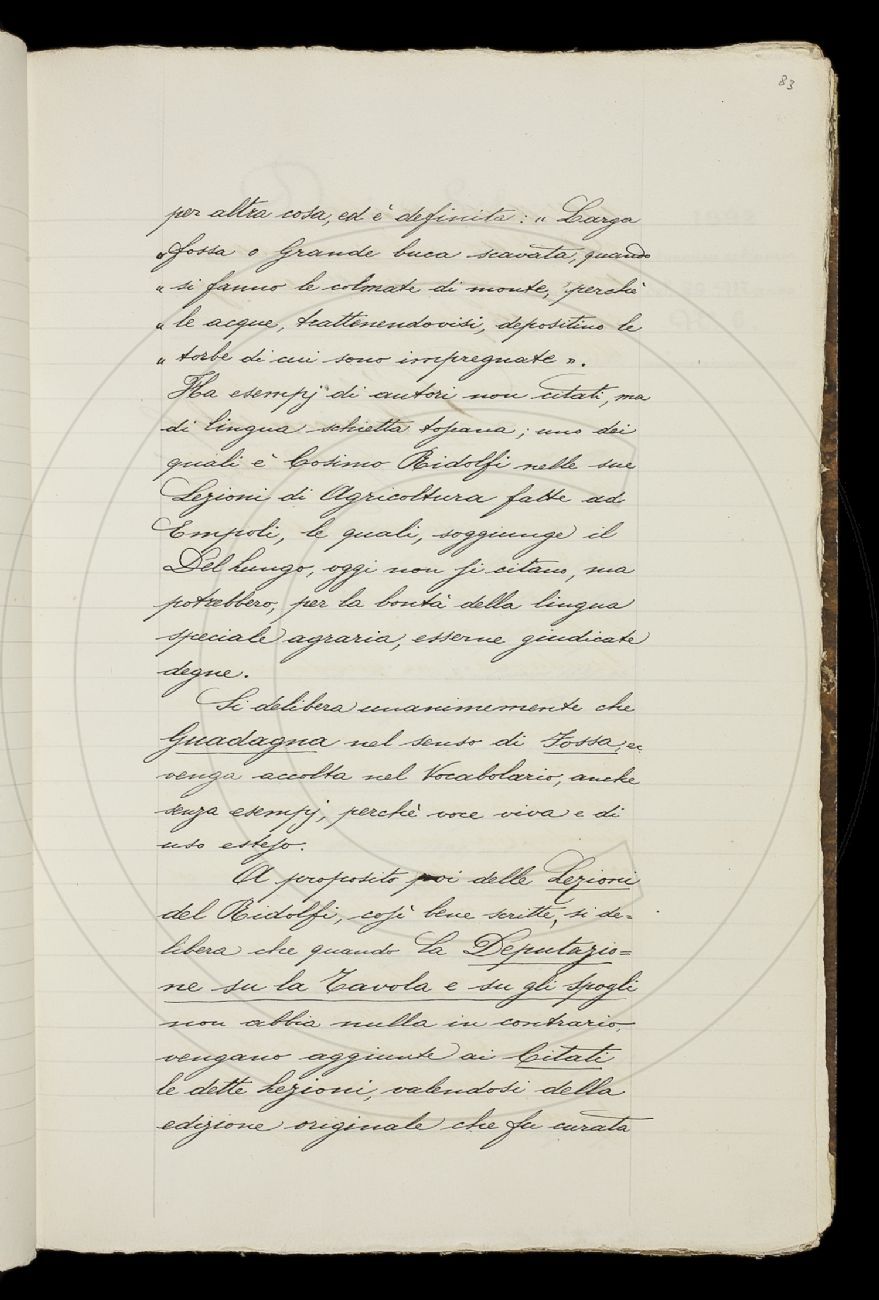 83
per altra cosa, ed è definita: " Larga
" fossa o grande buca scavata, quando
" si fanno le colmate di monte, perchè
" le acque, trattenendovisi, depositino le
" torbe di cui sono impregnate ".
Ha esempj di autori non citati, ma
di lingua schietta toscana; uno dei
quali è Cosimo Ridolfi nelle sue
Lezioni di Agricoltura fatte ad
Empoli, le quali, soggiunge il
Del Lungo, oggi non si citano, ma
potrebbero, per la bontà della lingua
speciale agraria, esserne giudicate
degne.
Si delibera unanimemente che
Guadagna nel senso di Fossa, ec
venga accolta nel Vocabolario, anche
senza esempj, perchè voce viva e di
uso esteso.
A proposito poi delle Lezioni
del Ridolfi, così bene scritte, si de=
libera che quando la Deputazio=
ne su la Tavola e su gli spogli
non abbia nulla in contrario
vengano aggiunte ai Citati
le dette Lezioni, valendosi della
edizione originale che fu curata